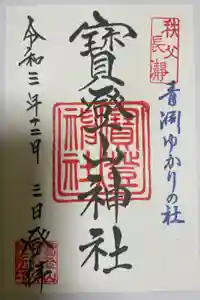 秩父
長瀞
青淵ゆかりの社
寳登山神社
寳登山神社
令和三年十二月三日登拝